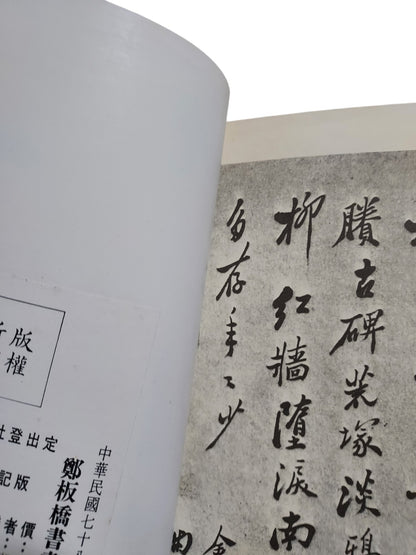 賸古碑荒塚淡鴉
柳紅牆墮淚南
多存
金
曲
版權
中華民國七十
鄭板橋書
定價：
出版者：
登記